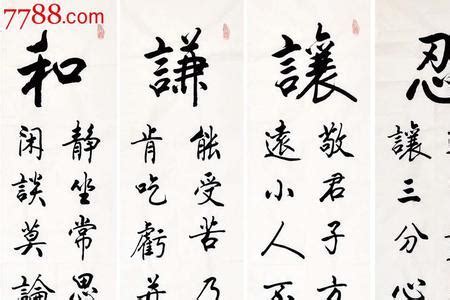 7788.com
忍
讓三分心
讓
敬君子方
遠小人不
謙
能受苦乃
肯吃虧并
和
靜坐常思
閑談莫論